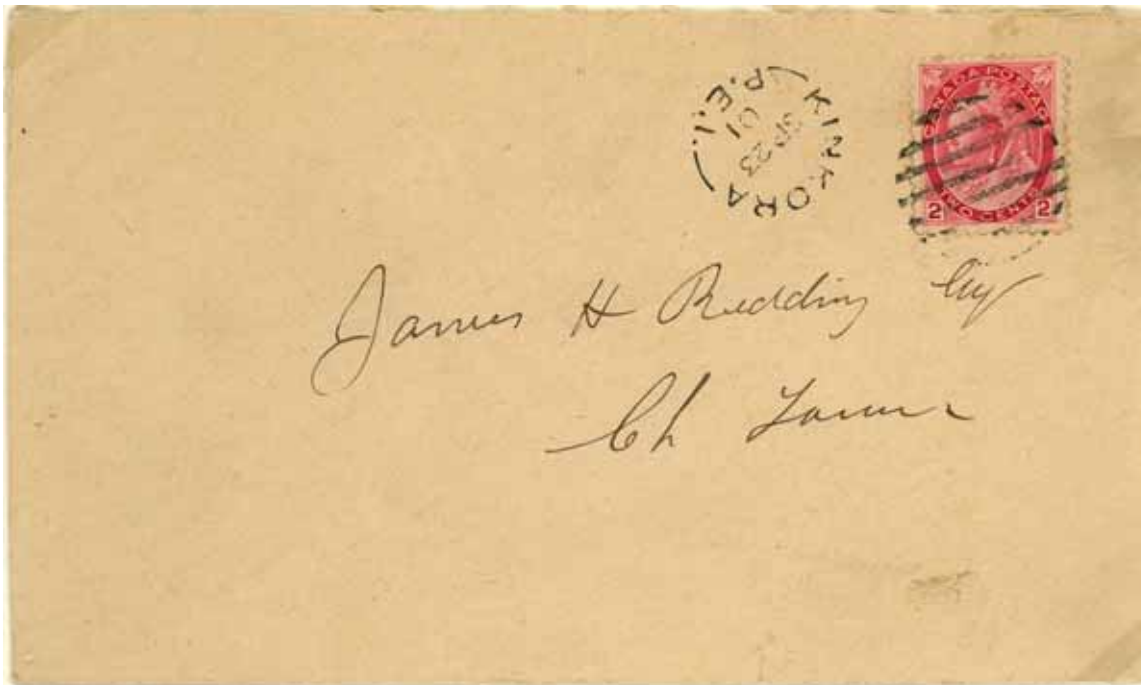 KINKORA
SP 23
01
P.E.I.
CANADA POSTAGE
TWO CENTS
2 2
James H Redding Esq
Ch Town